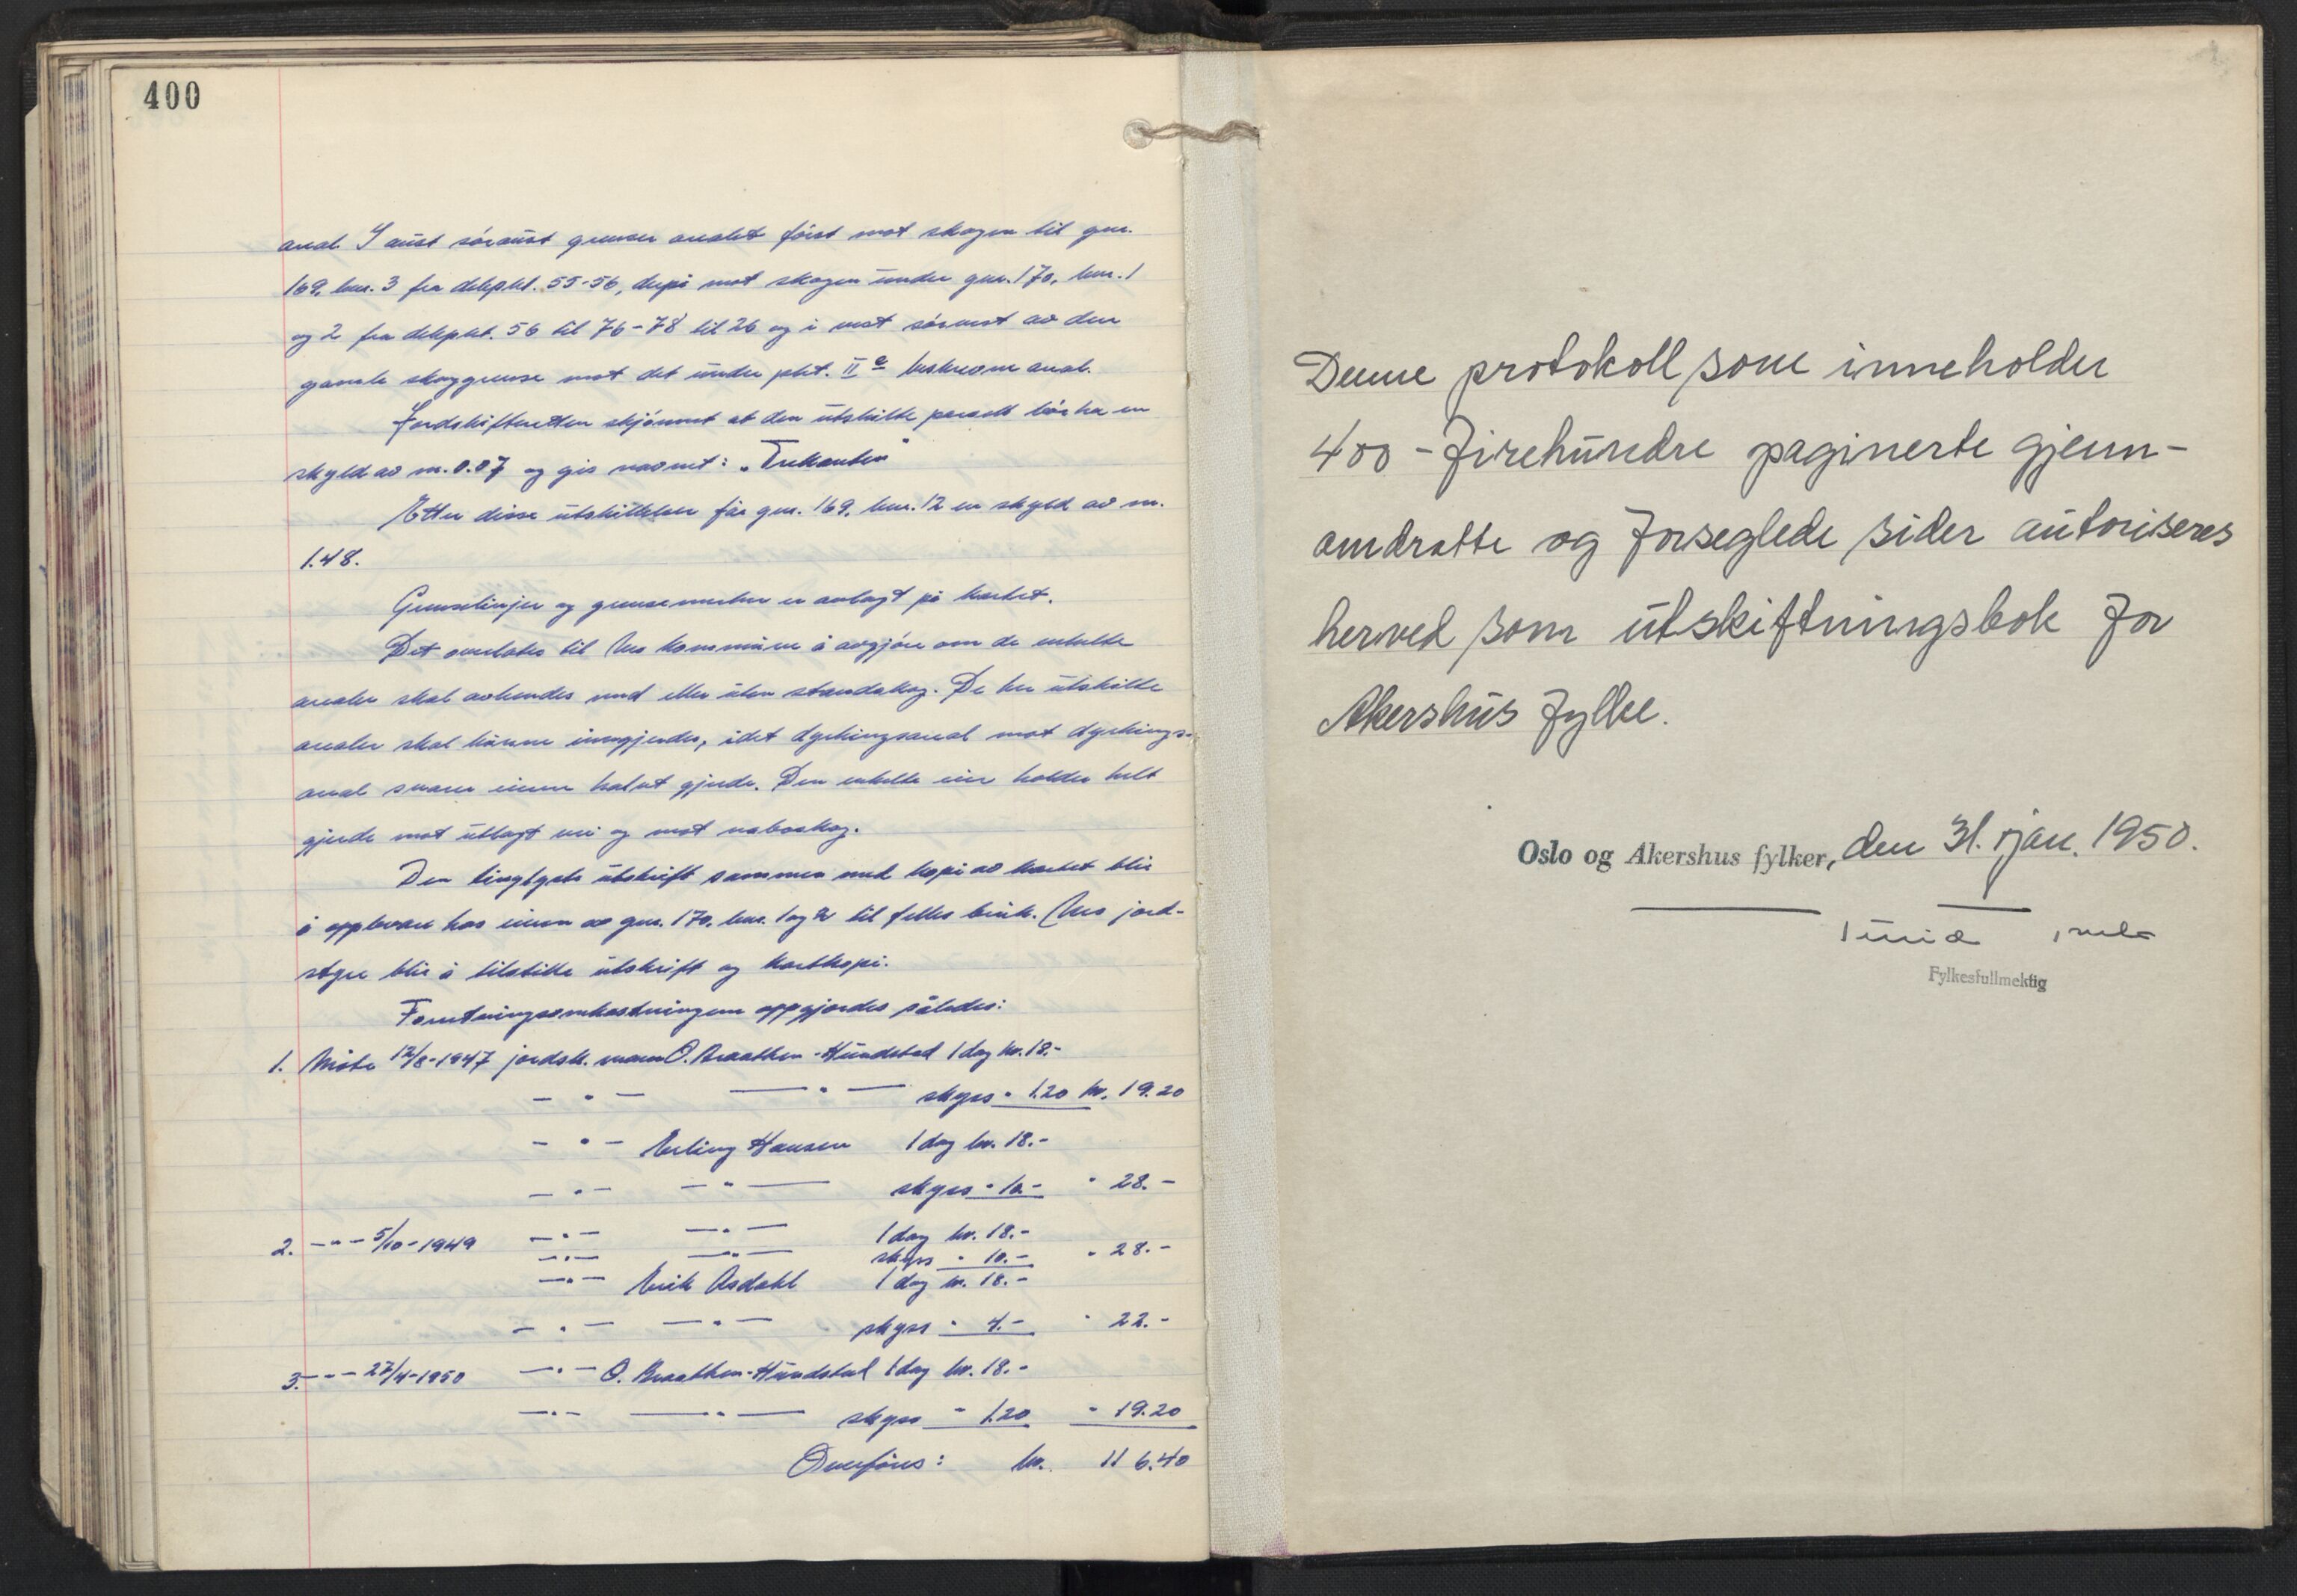 400
areal. I aust söraust grenser arealet först mot skogen til gnr.
169, bnr. 3 fra delepkt. 55-56, derpå mot skogen under gnr. 170, bnr. 1
og 2 fra delepkt. 56 til 76-78 til 26 og i vest sörvest av den
gamle skoggrense mot det under pkt. II e beskrevne areal.
Jordskifteretten skjönnet at den utskilte parsell bör ha en
skyld av m. 0.07 og gis navnet: „Trekanten"
Etter disse utskillelser får gnr. 169, bnr. 12 en skyld av m.
1.48.
Grenselinjer og grensemerker er avlagt på kartet.
Det overlates til kommune å avgjöre om de enkelte
arealer skal avhendes med eller uten standskog. De her utskilte
arealer skal kunne inngjerdes, idet dyrkingsareal mot dyrkings-
areal svarer hver halvt gjerde. Den enkelte eier holder helt
gjerde mot utlagt vei og mot naboskog.
Den tinglyste utskrift sammen med kopi av kartet blir
å oppbevare hos eieren av gnr. 170, bnr. 1 og 2 til felles bruk. jord-
styre blir å tilstille utskrift og kartkopi.
Forretningsomkostningene oppgjordes således:
1. Möte 12/8-1947 jordsk. mann O. Braathen-Hundstad 1 dag kr. 18.-
- " - — " — skyss " 1.20 kr. 19.20
- " - Erling Hansen 1 dag kr. 18.-
- " - - " — skyss " 10.- " 28.-
2. - " - 5/10-1949 - " - — " — 1 dag kr. 18.-
- " - — " — skyss " 10.- " 28.-
- " - Erik Asdahl 1 dag kr. 18.-
- " - — " — skyss " 4.- " 22.-
3. - " - 27/4-1950 - " - O. Braathen-Hundstad 1 dag kr. 18.-
- " - — " — skyss " 1.20 " 19.20
Overföres: kr. 116.40
Denne protokoll som inneholder
400 - firehundre paginerte gjenn-
omdratte og forseglede sider autoriseres
herved som utskiftningsbok for
Akershus fylke.
Oslo og Akershus fylker, den 31. jan. 1950.
Fylkesfullmektig